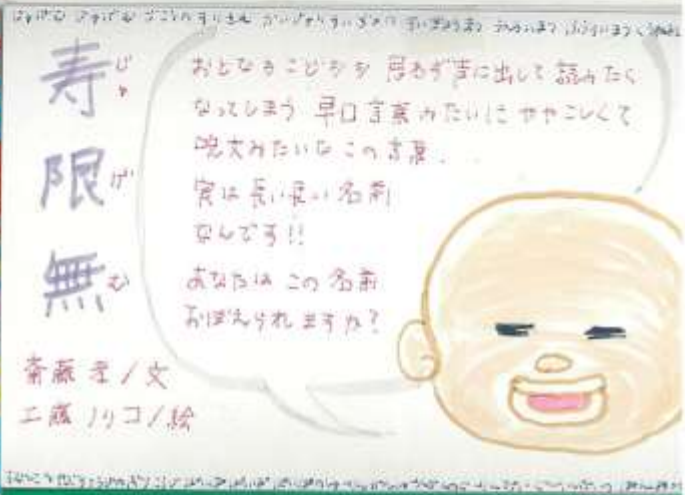 じゅげむ じゅげむ ごこうのすりきれ かいじゃりすいぎょの すいぎょうまつ うんらいまつ ふうらいまつ くうねる
寿限無
じゅ
げ
む
おとなもこどもも 思わず声に出して 読みたく
なってしまう 早口言葉みたいに ややこしくて
呪文みたいな この言葉.
実は長い長い名前
なんです!!
あなたは この名前
おぼえられますか?
斎藤 孝/文
工藤ノリコ/絵